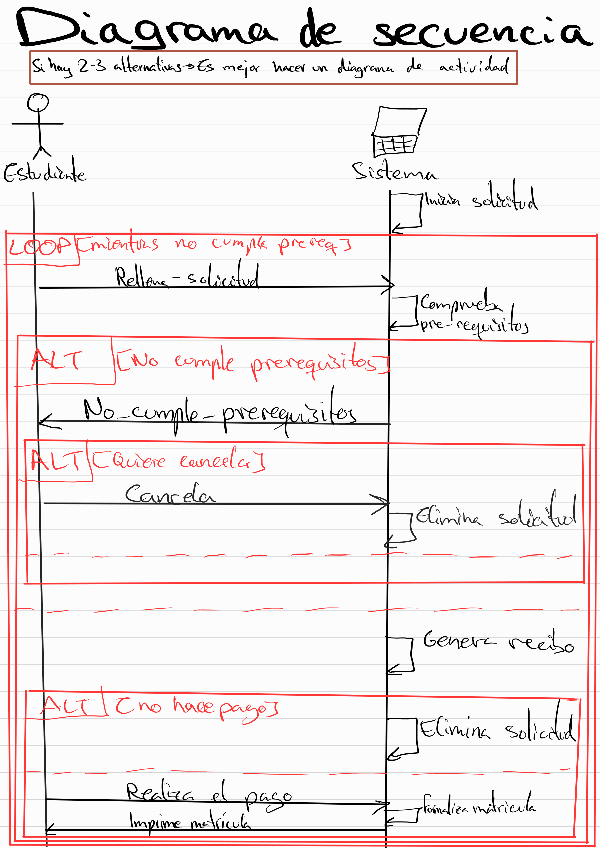 Diagrama de secuencia
Si hay 2-3 alternativas→Es mejor hacer un diagrama de actividad
Estudiante
Sistema
Inicia solicitud
LOOP [mientras no cumpla prereq]
Rellena-solicitud
Comprueba
pre-requisitos
ALT [No cumple prerequisitos]
No_cumple_prerequisitos
ALT [Quiere cancela]
Cancela
Elimina solicitud
Genera recibo
ALT [no hace pago]
Elimina solicitud
Realiza el pago
Formaliza matrícula
Imprime matrícula